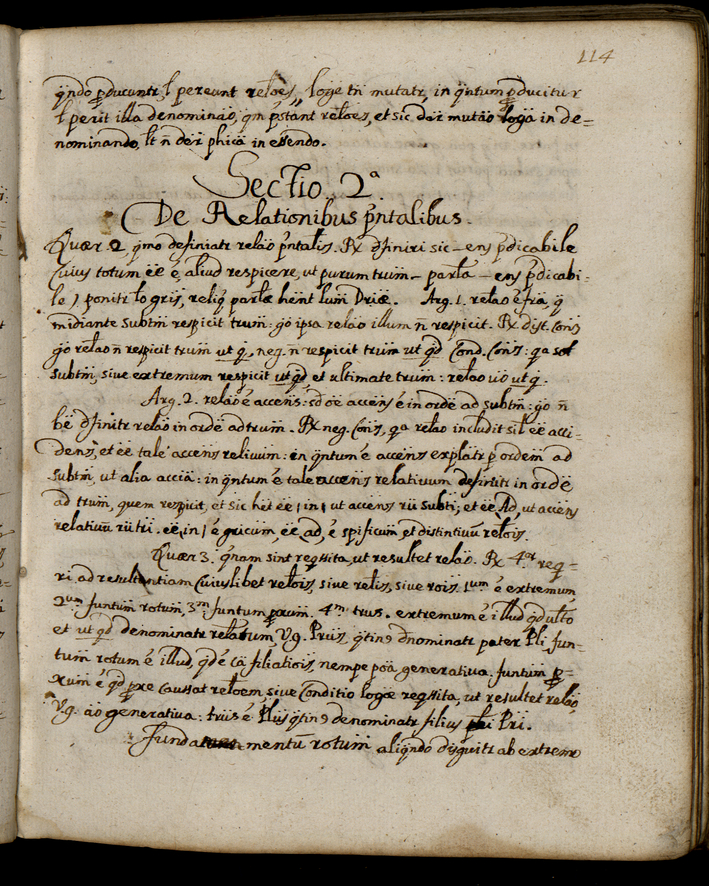 114
qndo producuntr, l pereunt reloes,, loge tn mutatr, in qntum producitur
l perit illa denominao, qm pstant reloes, et sic dar mutao loga in de=
nominando, lt n dar phica in essendo.
Sectio 2ª
De Relationibus pntalibus.
Quær 2 qmo definiatr relao pntalis. Rx dfiniri sic - ens pdicabile
Cuius totum ee é, aliud respicere, ut purum trum - parla - ens pdicabi-
le) ponitr lo gris, reliq parlæ hent lum Driæ. Arg. 1. relao é fra, q
midiante subtm respicit trum: go ipsa relao illum n respicit. Rx dist. Cons
go relao n respicit trum ut q. neg. n respicit trum ut qd Cond. Cons: qa sol
subtm, sive extremum respicit ut qd, et ultimate trum: relao vo ut q.
Arg. 2. relao é accens: sd oe accens é in orde ad subtm: go n
be dfinitr relao in orde ad trum. Rx neg. Cons, qa relao includit sil ee acci-
dens, et ee tale accens relivum: in qntum é accens explatr p ordem ad
subtm, ut alia accia: in qntum é tale accens relativum definitr in orde
ad trum, quem respicit, et sic het ee, in, ut accens rii subti, et ee Ad, ut accens
relativum rii tri. ee, in, é gricum, ee, ad, é spificum et distinctivu relois.
Quær 3. qnam sint reqssita, ut resultet relao. Rx 4or req-
ri ad resultantiam Cuiuslibet relois, sive relis, sive rois. 1um é extremum,
2um funtum rotum, 3m funtum proxum. 4m trus. extremum é illud qd ulto
et ut qd denominatr relatum, V.g. Priis, qtin9 dnominatr pater Pli fun-
tum rotum é illud, qd é ca filiatiois, nempe poa generativa. funtum pro-
xum é qd pxe Caussat reloem, sive Conditio logæ reqssita, ut resultet relao,
V.g. ao generativa: trus é Plius qtin9 denominatr filius Pri.
Fundamentu rotum aliqndo disguitr ab extremo